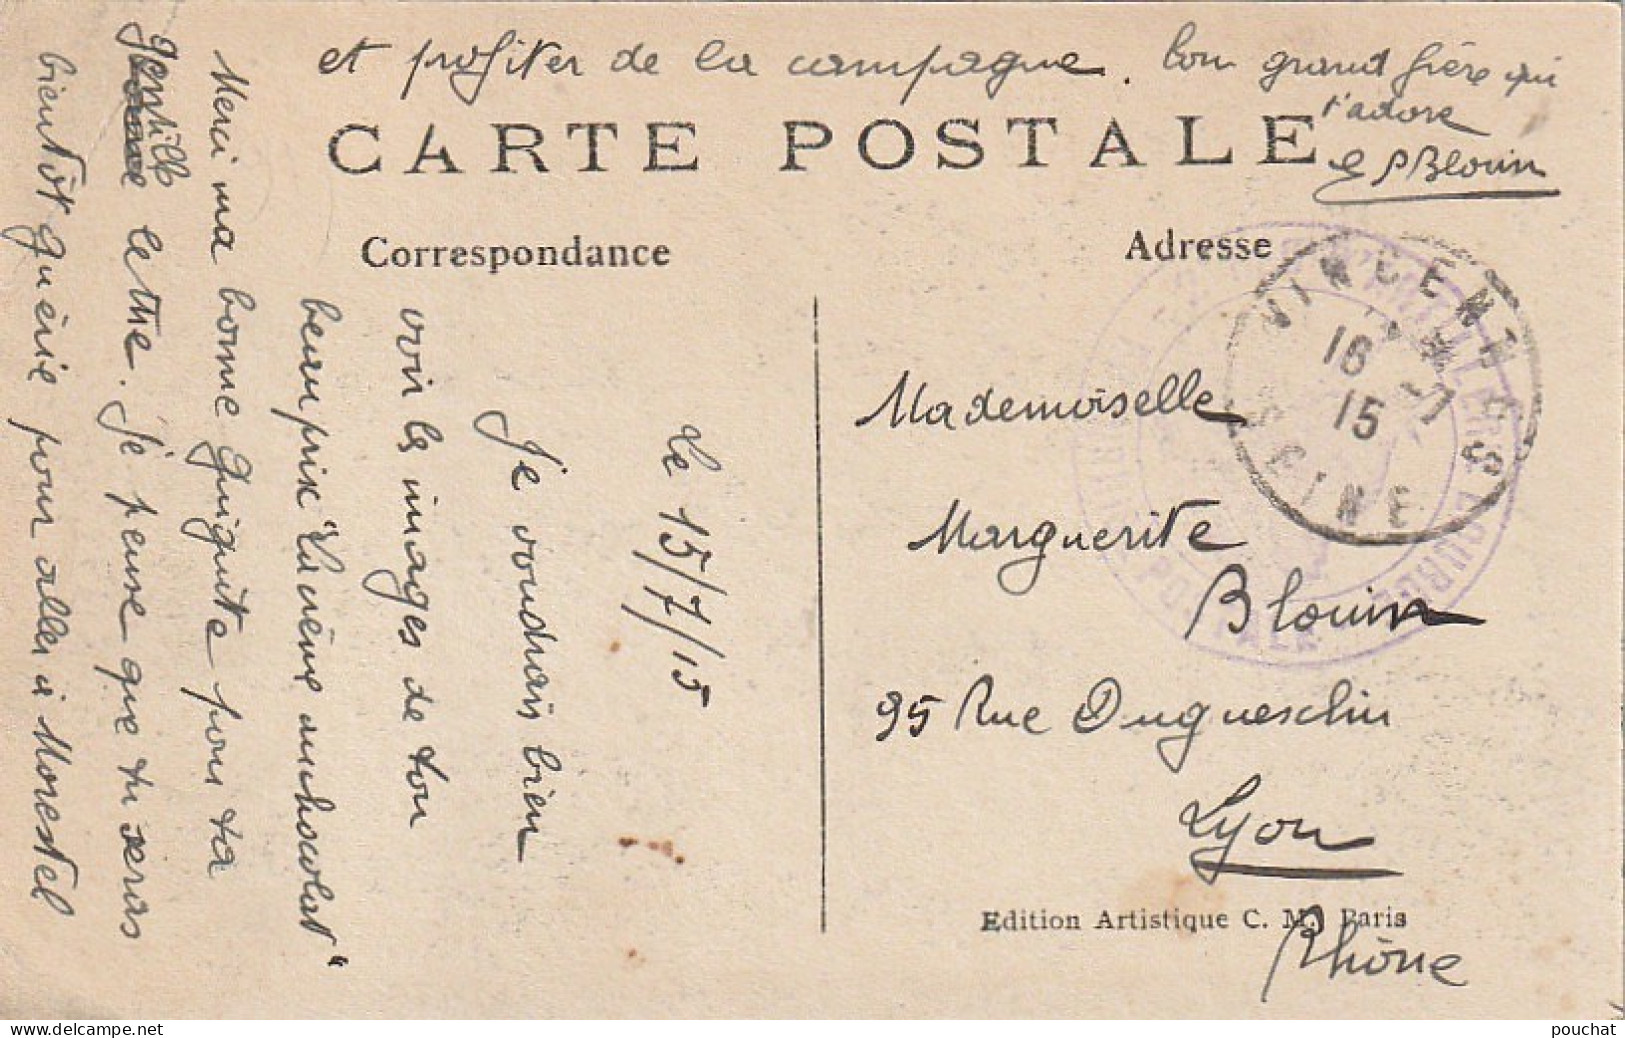 et profiter de la campagne. ton grand frère qui
t'adore
P Blouin
CARTE POSTALE
Correspondance
Adresse
Le 15/7/15
Je voudrais bien
voir les images de ton
beau prix "La
Merci ma bonne Guiguite pour ta
gentille lettre. Je pense que tu seras
bientôt guérie pour aller à Morestel
Mademoiselle
Marguerite
Blouin
95 Rue Duguesclin
Lyon
Rhône
Edition Artistique C. M. Paris
VINCENNES
16 -7
15
SEINE
POSTALE
pouchat
delcampe.net